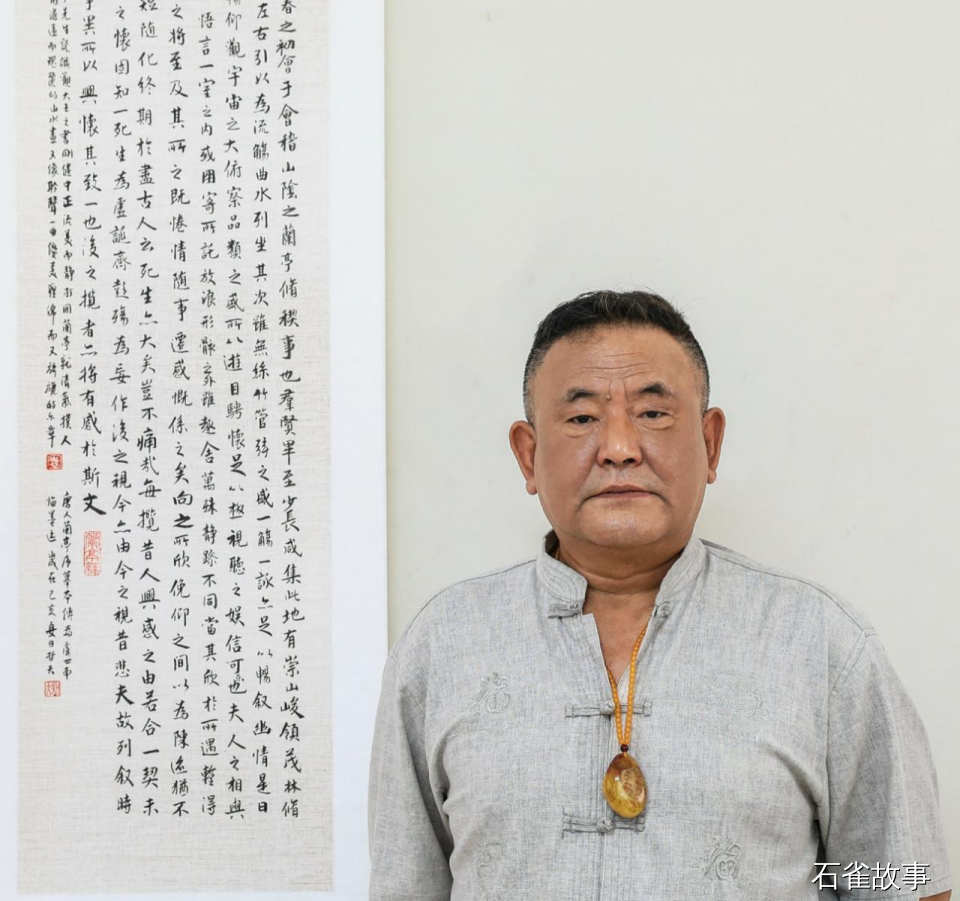 春之初會于會稽山陰之蘭亭脩禊事也羣賢畢至少長咸集此地有崇山峻領茂林脩
左右引以為流觴曲水列坐其次雖無絲竹管弦之盛一觴一詠亦足以暢叙幽情是日
仰觀宇宙之大俯察品類之盛所以遊目騁懷足以極視聽之娱信可也夫人之相與
悟言一室之内或因寄所託放浪形骸之外雖趣舍萬殊静躁不同當其欣於所遇暫得
之將至及其所之既惓情随事遷感慨係之矣向之所欣俛仰之間以為陳迹猶不
短随化終期於盡古人云死生亦大矣豈不痛哉每攬昔人興感之由若合一契未
之懷固知一死生為虚誕齊彭殤為妄作後之視今亦由今之視昔悲夫故列叙時
事異所以興懷其致一也後之攬者亦將有感於斯文
唐人蘭亭序摹本傳為虞世南
臨墨迹歲在己亥
石雀故事